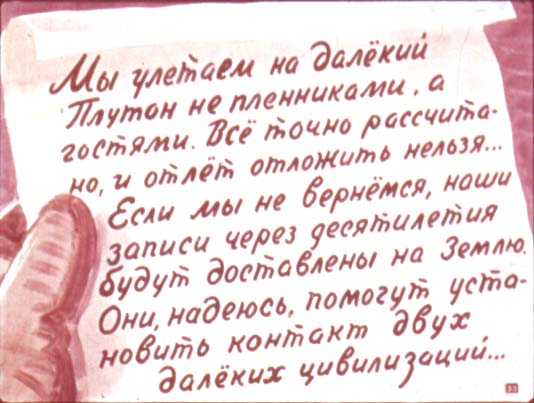 Мы улетаем на далёкий
Плутон не пленниками, а
гостями. Всё точно рассчита-
но, и отлёт отложить нельзя...
Если мы не вернёмся, наши
записи через десятилетия
будут доставлены на Землю.
Они, надеюсь, помогут уста-
новить контакт двух
далёких цивилизаций...
33